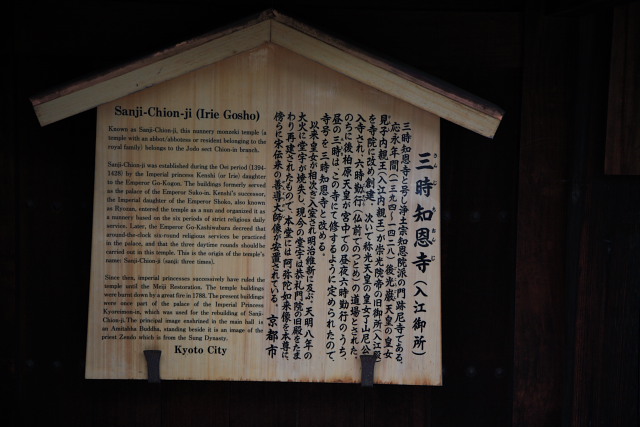 Sanji-Chion-ji (Irie Gosho)
Known as Sanji-Chion-ji, this nunnery monzeki temple (a
temple with an abbot/abbotess or resident belonging to the
royal family) belongs to the Jodo sect Chion-in branch.
Sanji-Chion-ji was established during the Oei period (1394-
1428) by the Imperial princess Kenshi (or Irie) daughter
to the Emperor Go-Kogon. The buildings formerly served
as the palace of the Emperor Suko-in. Kenshi's successor,
the Imperial daughter of the Emperor Shoko, also known
as Ryozan, entered the temple as a nun and organized it as
a nunnery based on the six periods of strict religious daily
service. Later, the Emperor Go-Kashiwabara decreed that
around-the-clock six-round religious services be practiced
in the palace, and that the three daytime rounds should be
carried out in this temple. This is the origin of the temple's
name: Sanji-Chion-ji (sanji: three times).
Since then, imperial princesses successively have ruled the
temple until the Meiji Restoration. The temple buildings
were burnt down by a great fire in 1788. The present buildings
were once part of the palace of the Imperial Princess
Kyoreimon-in, which was used for the rebuilding of Sanji-
Chion-ji. The principal image enshrined in the main hall is
an Amitabha Buddha, standing beside it is an image of the
priest Zendo which is from the Sung Dynasty.
Kyoto City
三時知恩寺（入江御所）
三時知恩寺と号し浄土宗知恩院派の門跡尼寺である。
応永年間（一三九四～一四二八）後光厳天皇の皇女
見子内親王（入江内親王）が崇光院帝の旧御所入江殿
を寺院に改め創建、次いで称光天皇の皇女了山尼公
入寺され、六時勤行（仏前でのつとめ）の道場とされた。
のちに後柏原天皇が宮中での昼夜六時勤行のうち、
昼の三時はこの寺にて修するように定められたので、
寺号を「三時知恩寺」と改める。
以来皇女が相次ぎ入室され明治維新に及ぶ。天明八年の
大火に堂宇が焼失し、現今の堂宇は恭礼門院の旧殿をたま
わり再建されたもので、本堂には阿弥陀如来像を本尊に、
傍らに宋伝来の善導大師像が安置されている。
京都市